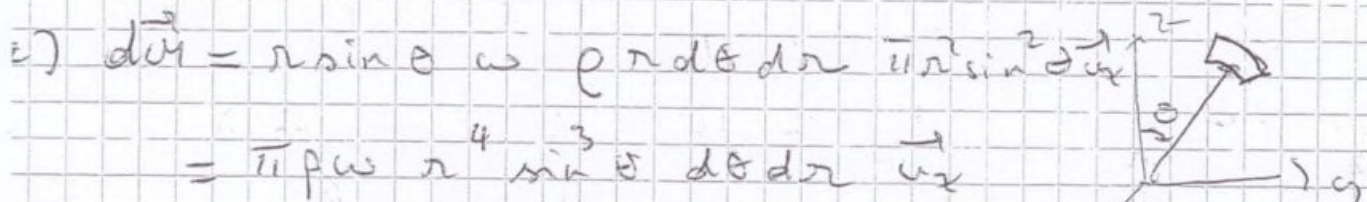 c) d𝓜⃗ = r sin θ ω ρ r dθ dr π r² sin² θ u⃗z
= π ρ ω r⁴ sin³ θ dθ dr u⃗z
z
θ
y